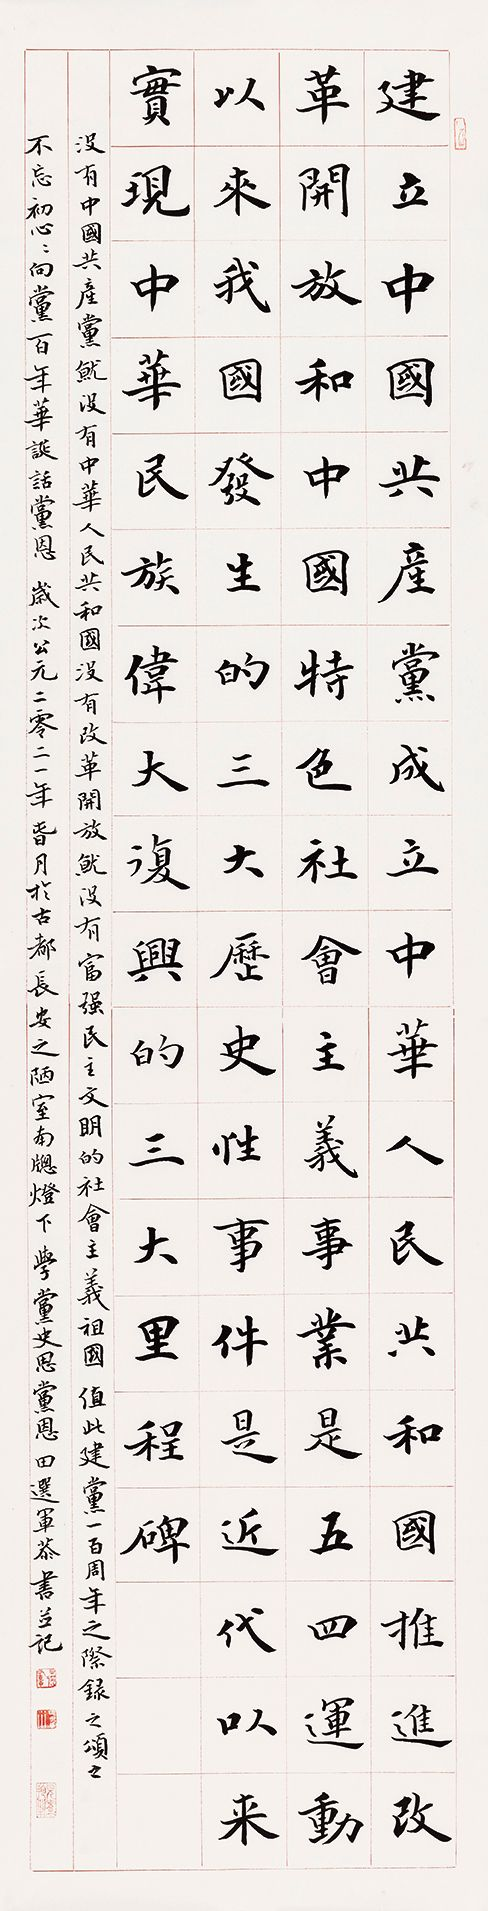 建立中國共産黨成立中華人民共和國推進改
革開放和中國特色社會主義事業是五四運動
以來我國發生的三大歷史性事件是近代以来
實現中華民族偉大復興的三大里程碑
没有中國共産黨就没有中華人民共和國没有改革開放就没有富强民主文明的社會主義祖國 值此建黨一百周年之際録之頌之
不忘初心心向黨百年華誕話黨恩 歲次公元二零二一年春月於古都長安之陋室南牕燈下 學黨史思黨恩 田選軍恭書並記